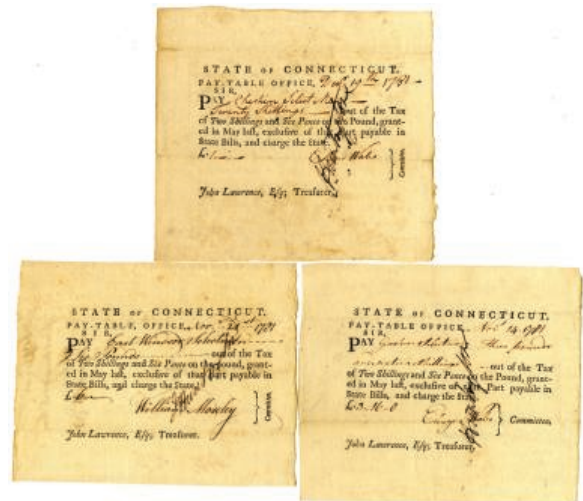 STATE OF CONNECTICUT.
PAY-TABLE OFFICE, 19th 1781
SIR,
PAY Select Men
Twenty Shillings out of the Tax
of Two Shillings and Six Pence on the Pound, grant-
ed in May last, exclusive of the Part payable in
State Bills, and charge the State.
Wales
Committee.
John Lawrence, Esq; Treasurer.
STATE OF CONNECTICUT.
PAY-TABLE OFFICE, Nov. 1781
SIR,
PAY East Windsor
Pounds out of the Tax
of Two Shillings and Six Pence on the Pound, grant-
ed in May last, exclusive of the Part payable in
State Bills, and charge the State.
William Mosely
Committee.
John Lawrence, Esq; Treasurer.
STATE OF CONNECTICUT.
PAY-TABLE OFFICE, Nov. 14 1781
SIR,
PAY three pounds
Shillings out of the Tax
of Two Shillings and Six Pence on the Pound, grant-
ed in May last, exclusive of the Part payable in
State Bills, and charge the State.
Committee,
John Lawrence, Esq; Treasurer,